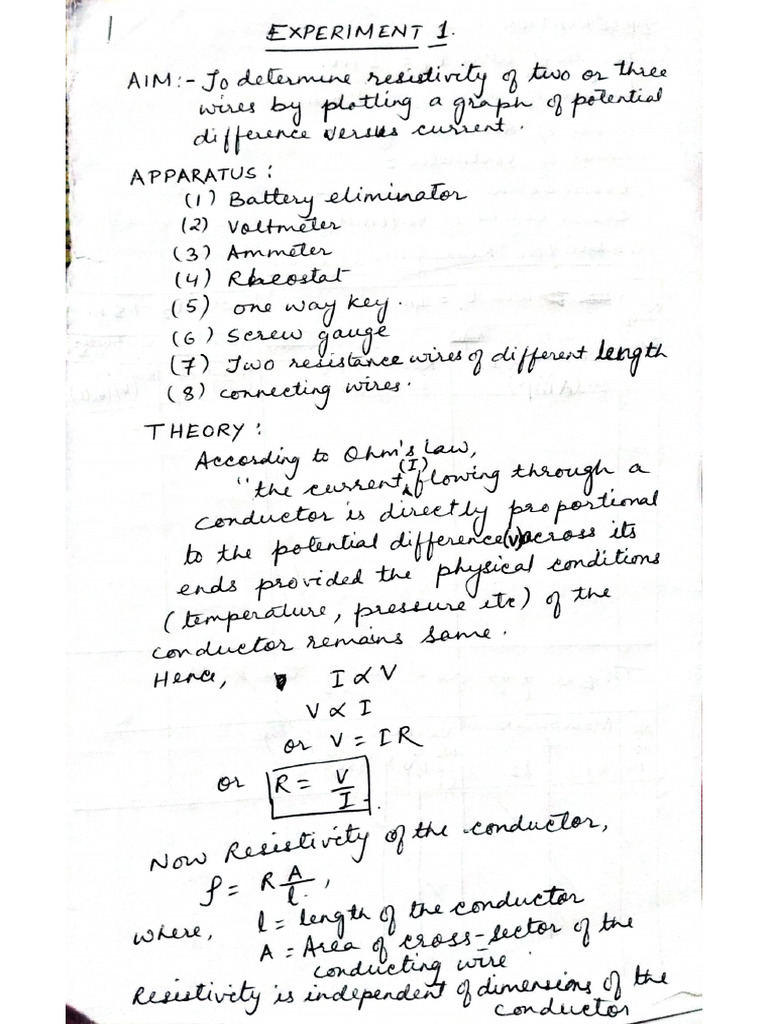 1
EXPERIMENT 1.
AIM:- To determine resistivity of two or three
wires by plotting a graph of potential
difference versus current.
APPARATUS:
(1) Battery eliminator
(2) Voltmeter
(3) Ammeter
(4) Rheostat
(5) one way key.
(6) Screw gauge
(7) Two resistance wires of different length
(8) connecting wires.
THEORY:
According to Ohm's law,
"the current (I) flowing through a
conductor is directly proportional
to the potential difference (V) across its
ends provided the physical conditions
(temperature, pressure etc) of the
conductor remains same.
Hence, I ∝ V
V ∝ I
or V = IR
or R = V/I.
Now Resistivity of the conductor,
ρ = R A/l,
where, l = length of the conductor
A = Area of cross-sector of the
conducting wire
Resistivity is independent of dimensions of the
conductor